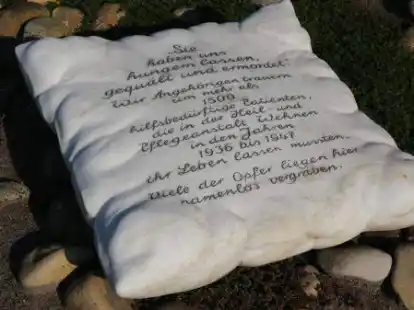 „Sie
haben uns
hungern lassen,
gequält und ermordet“.
Wir Angehörigen trauern
um mehr als
1500
hilfsbedürftige Patienten,
die in der Heil- und
Pflegeanstalt Wehnen
in den Jahren
1936 bis 1947
ihr Leben lassen mussten.
Viele der Opfer liegen hier
namenlos vergraben.